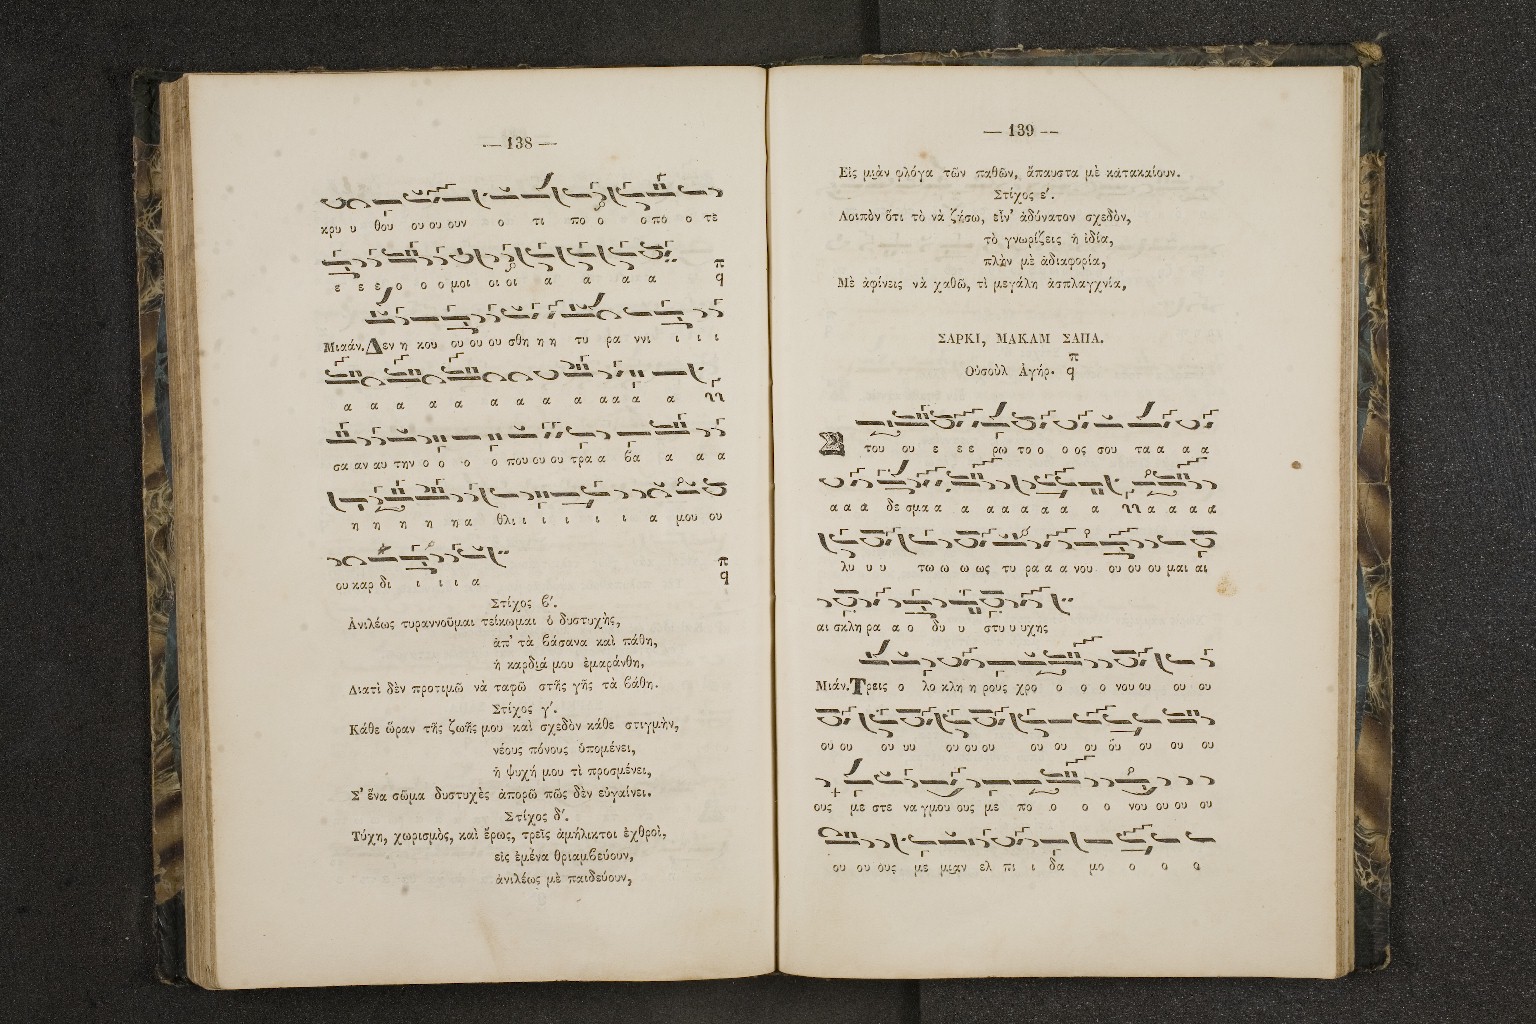 — 138 —
κρυ υ θου ου ου ουν ο τι πο ο ο πο ο τε
ε ε ε ο ο ο μοι οι οι α α α α
Μιαάν. Δεν η κου ου ου ου σθη η η τυ ρα ννι ι ι ι
α α α α α α α α α α α α α
σα αν αυ την ο ο ο ο που ου ου τρα α βα α α α
η η η η η α θλι ι ι ι ι ι α μου ου
ου καρ δι ι ι ι α
Στίχος β'.
Ἀνιλέως τυραννοῦμαι τείκωμαι ὁ δυστυχὴς,
ἀπ' τὰ βάσανα καὶ πάθη,
ἡ καρδιά μου ἐμαράνθη,
Διατὶ δὲν προτιμῶ νὰ ταφῶ στῆς γῆς τὰ βάθη.
Στίχος γ'.
Κάθε ὥραν τῆς ζωῆς μου καὶ σχεδὸν κάθε στιγμὴν,
νέους πόνους ὑπομένει,
ἡ ψυχή μου τὶ προσμένει,
Σ' ἕνα σῶμα δυστυχὲς ἀπορῶ πῶς δὲν εὐγαίνει.
Στίχος δ'.
Τύχη, χωρισμὸς, καὶ ἔρως, τρεῖς ἀμήλικτοι ἐχθροὶ,
εἰς ἐμένα θριαμβεύουν,
ἀνιλέως μὲ παιδεύουν,
— 139 —
Εἰς μιὰν φλόγα τῶν παθῶν, ἄπαυστα μὲ κατακαίουν.
Στίχος ε'.
Λοιπὸν ὅτι τὸ νὰ ζήσω, εἶν' ἀδύνατον σχεδὸν,
τὸ γνωρίζεις ἡ ἰδία,
πλὴν μὲ ἀδιαφορία,
Μὲ ἀφίνεις νὰ χαθῶ, τὶ μεγάλη ἀσπλαγχνία,
ΣΑΡΚΙ, ΜΑΚΑΜ ΣΑΠΑ.
Οὐσοὺλ Ἀγήρ.
Σ του ου ε ε ε ρω το ο ο ος σου τα α α α
α α α δε σμα α α α α α α α α α α α α
λυ υ υ τω ω ω ως τυ ρα α α νου ου ου ου μαι αι
αι σκλη ρα α ο δυ υ στυ υ υχης
Μιάν. Τρεις ο λο κλη η ρους χρο ο ο ο νου ου ου ου
ου ου ου υυ ου ου ου ου ου ου ου ου ου ου
ους με στε να γμου ους με πο ο ο ο νου ου ου ου
ου ου ους με μιαν ελ πι ι δα μο ο ο ο